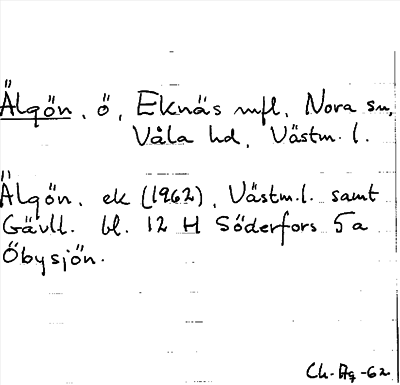 Älgön, ö, Eknäs mfl, Nora sn,
Våla hd, Västm. l.
Älgön, ek (1962), Västm.l. samt
Gävll. bl. 12 H Söderfors 5a
Öbysjön.
Ch-Ag -62